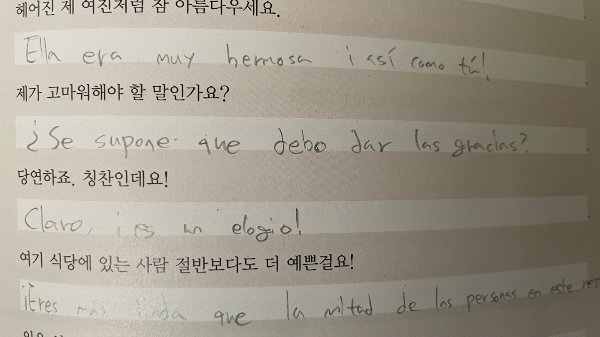 헤어진 제 여친처럼 참 아름다우세요.
Ella era muy hermosa ¡así como tú!
제가 고마워해야 할 말인가요?
¿Se supone que debo dar las gracias?
당연하죠. 칭찬인데요!
Claro, ¡es un elogio!
여기 식당에 있는 사람 절반보다도 더 예쁜걸요!
¡Eres más linda que la mitad de las personas en este res